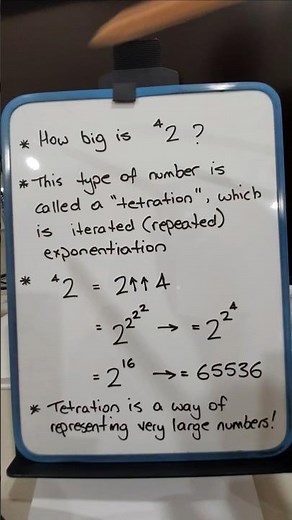 * How big is ⁴2 ?
* This type of number is
called a "tetration", which
is iterated (repeated)
exponentiation
* ⁴2 = 2↑↑4
= 2^2^2^2 → = 2^2^4
= 2^16 → = 65536
* Tetration is a way of
representing very large numbers!